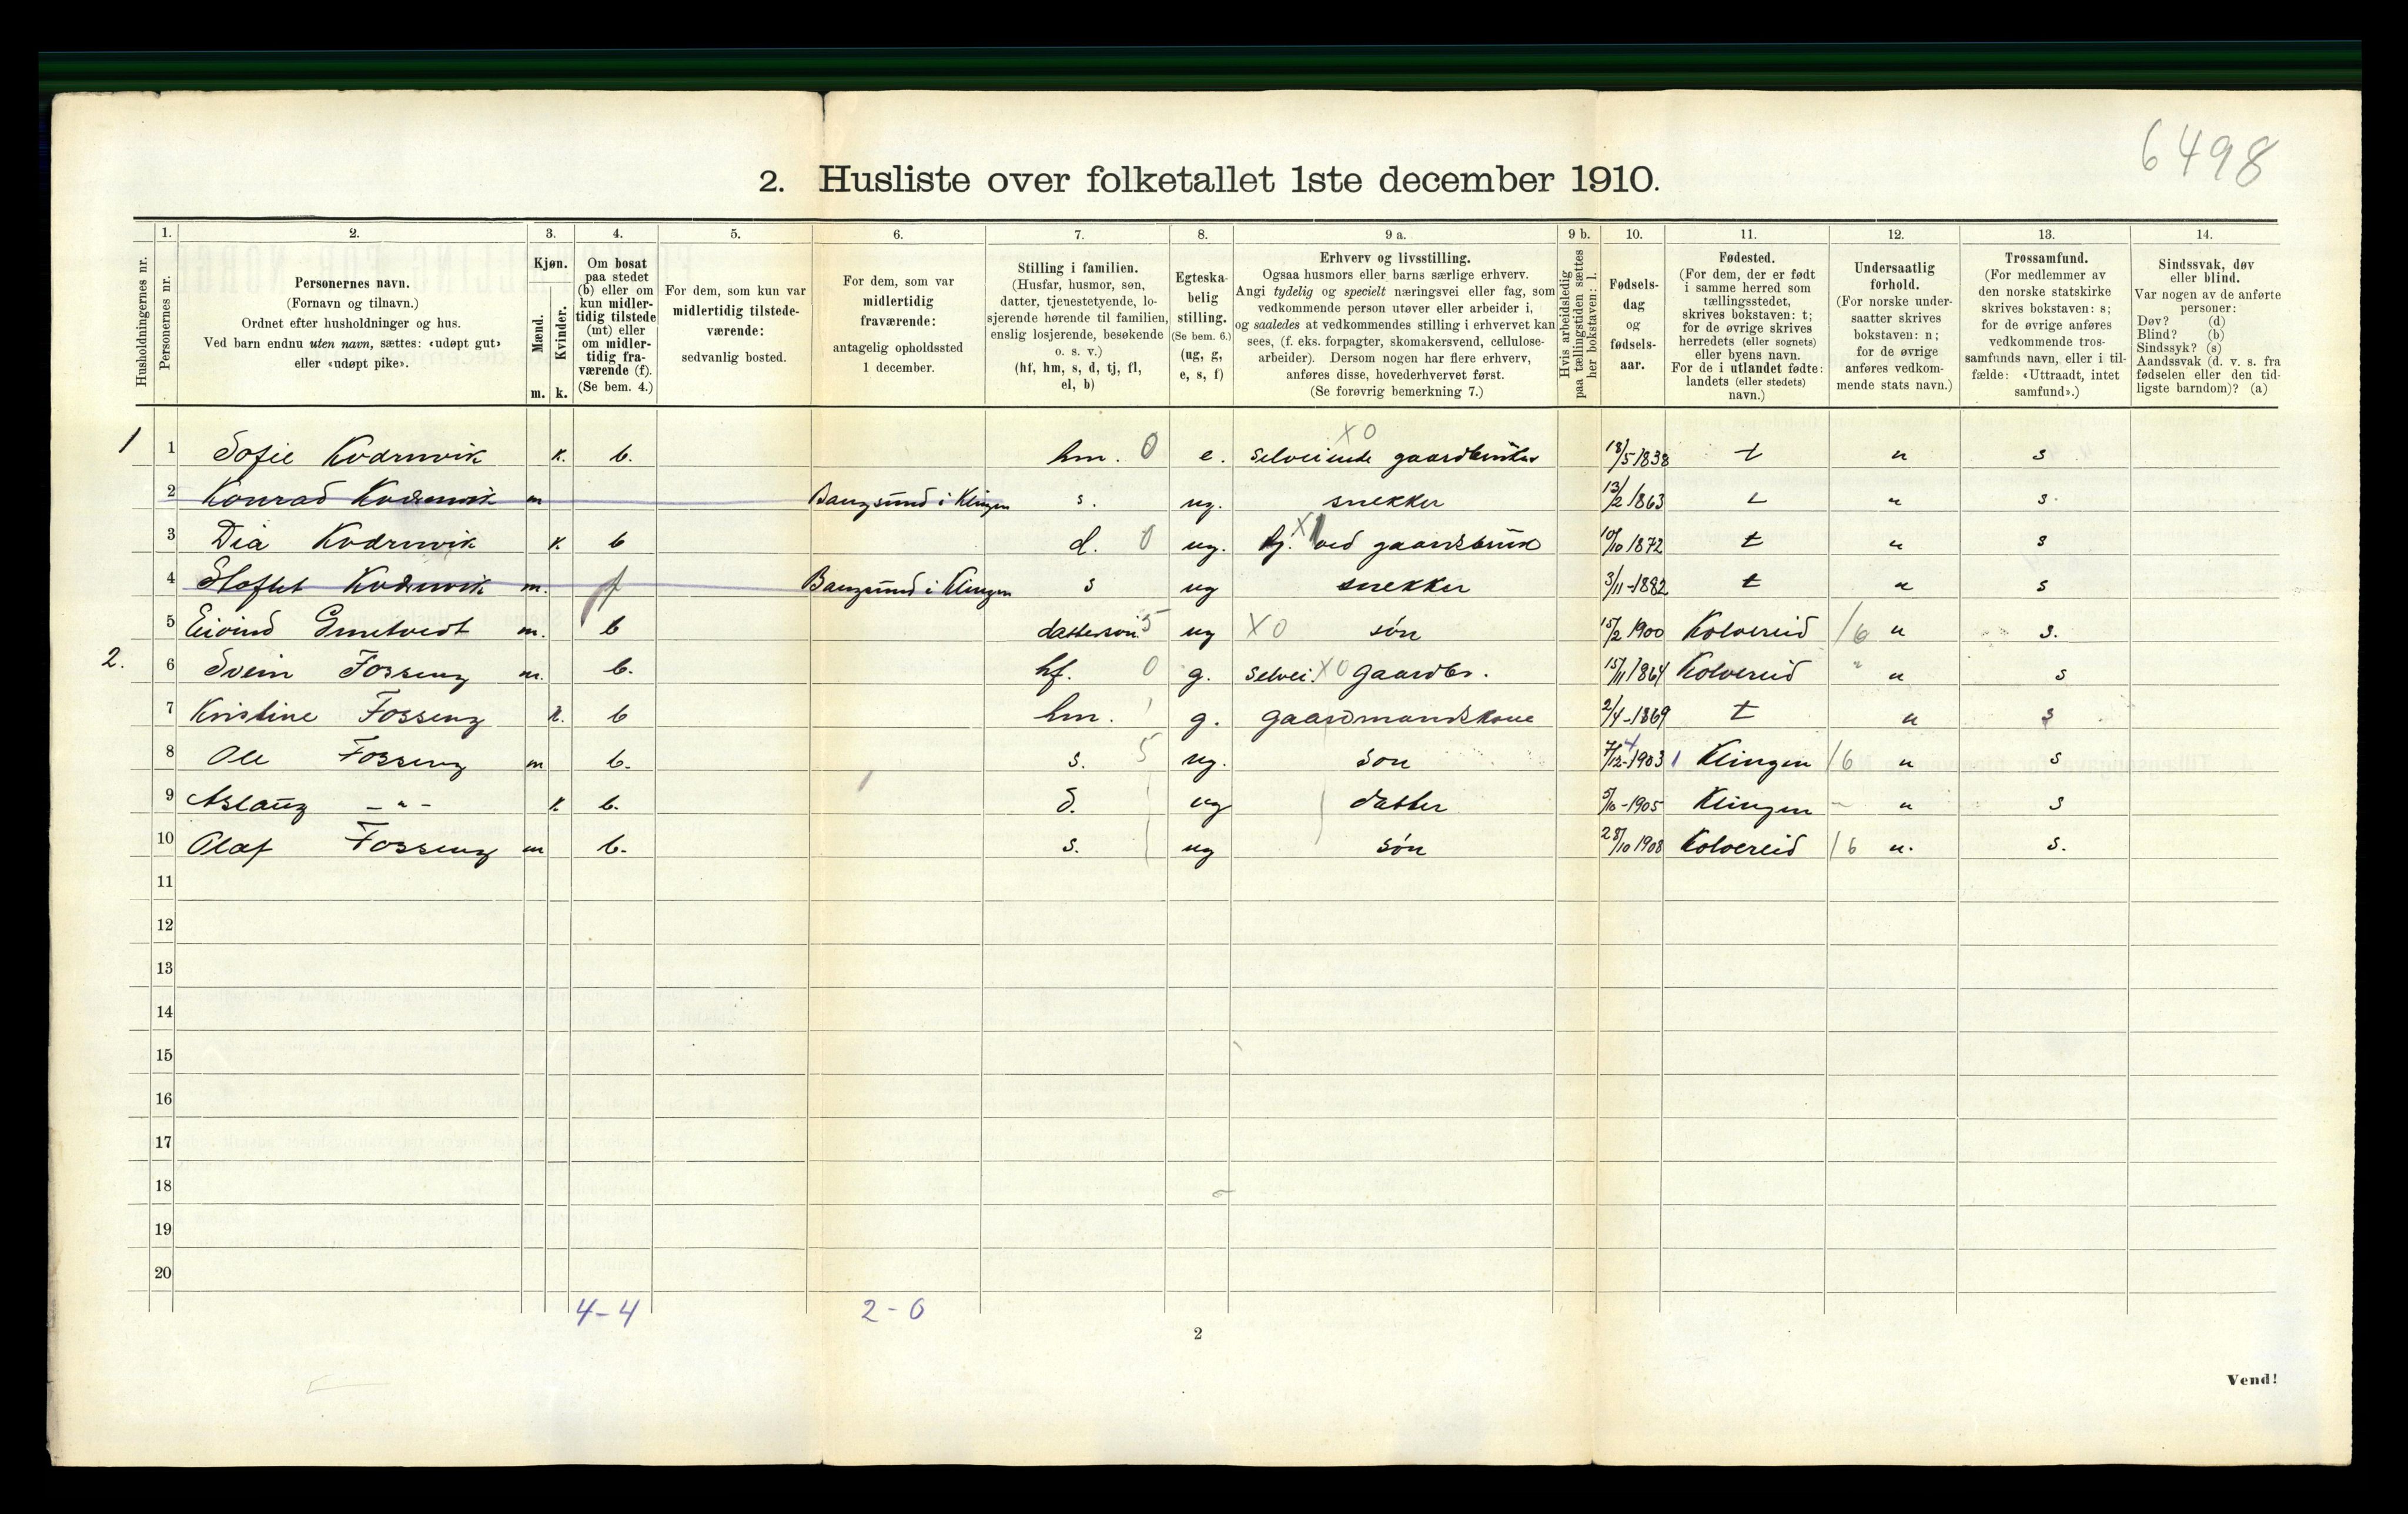 6498
2. Husliste over folketallet 1ste december 1910.
1. 2. 3. 4. 5. 6. 7. 8. 9 a. 9 b. 10. 11. 12. 13. 14.
Husholdningernes nr.
Personernes nr.
Personernes navn.
(Fornavn og tilnavn.)
Ordnet efter husholdninger og hus.
Ved barn endnu uten navn, sættes: «udøpt gut»
eller «udøpt pike».
Kjøn.
Mænd.
Kvinder.
m. k.
Om bosat
paa stedet
(b) eller om
kun midler-
tidig tilstede
(mt) eller
om midler-
tidig fra-
værende (f).
(Se bem. 4.)
For dem, som kun var
midlertidig tilstede-
værende:
sedvanlig bosted.
For dem, som var
midlertidig
fraværende:
antagelig opholdssted
1 december.
Stilling i familien.
(Husfar, husmor, søn,
datter, tjenestetyende, lo-
sjerende hørende til familien,
enslig losjerende, besøkende
o. s. v.)
(hf, hm, s, d, tj, fl,
el, b)
Egteska-
belig
stilling.
(Se bem. 6.)
(ug, g,
e, s, f)
Erhverv og livsstilling.
Ogsaa husmors eller barns særlige erhverv.
Angi tydelig og specielt næringsvei eller fag, som
vedkommende person utøver eller arbeider i,
og saaledes at vedkommendes stilling i erhvervet kan
sees, (f. eks. forpagter, skomakersvend, cellulose-
arbeider). Dersom nogen har flere erhverv,
anføres disse, hovederhvervet først.
(Se forøvrig bemerkning 7.)
Hvis arbeidsledig
paa tællingstiden sættes
her bokstaven: l.
Fødsels-
dag
og
fødsels-
aar.
Fødested.
(For dem, der er født
i samme herred som
tællingsstedet,
skrives bokstaven: t;
for de øvrige skrives
herredets (eller sognets)
eller byens navn.
For de i utlandet fødte:
landets (eller stedets)
navn.)
Undersaatlig
forhold.
(For norske under-
saatter skrives
bokstaven: n;
for de øvrige
anføres vedkom-
mende stats navn.)
Trossamfund.
(For medlemmer av
den norske statskirke
skrives bokstaven: s;
for de øvrige anføres
vedkommende tros-
samfunds navn, eller i til-
fælde: «Uttraadt, intet
samfund».)
Sindssvak, døv
eller blind.
Var nogen av de anførte
personer:
Døv? (d)
Blind? (b)
Sindssyk? (s)
Aandssvak (d. v. s. fra
fødselen eller den tid-
ligste barndom)? (a)
X 0
1 1 Sofie Kvdrnvik k. b. hm. 0 e. 18/5 1838 t n s
2 Konrad Kvdrnvik m Bangsund i Klingen s. ug. snekker 13/2 1863 t n s.
3 Dia Kvdrnvik k. b d. 0 ug. tj. X ved gaardsbruk 10/10 1872 t n s
4 Kvdrnvik m. f Bangsund i Klingen s ug snekker 3/11-1882 t n s
5 Eivind m. b datterson 5 ug X 0 søn 15/2 1900 Kolvereid /6 n s.
2. 6 Svein Fosseng m. b. hf. 0 g. selvei. X 0 Gaardbr. 15/11 1864 Kolvereid " n s
7 Kristine Fosseng k. b hm. g. gaardmandskone 2/4-1869 t n s
8 Ole Fosseng m b. s. 5 ug. son 7/12-1903 Klingen /6 n s
9 Aslaug -"- k. b. d. ug datter 5/10-1905 Klingen n s
10 Olaf Fosseng m b. s. ug søn 28/10 1908 Kolvereid /6 n. s.
11
12
13
14
15
16
17
18
19
20
4-4 2-0
2
Vend!